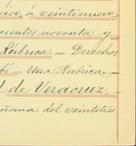 á veintinueve
cientos noventa y
Rúbrica. — Derechos
Una Rúbrica. —
l de Veracruz. —
ñana del veintitres